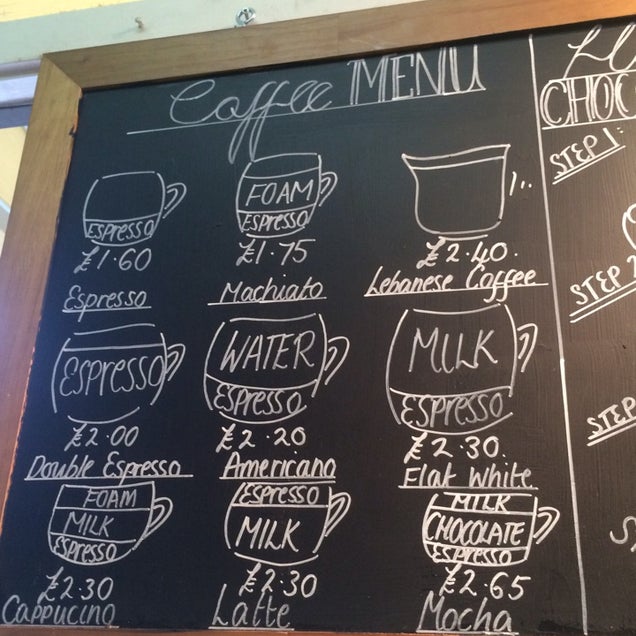 Coffee MENU
ESPRESSO
£1.60
Espresso
FOAM
ESPRESSO
£1.75
Machiato
£2.40.
Lebanese Coffee
ESPRESSO
£2.00
Double Espresso
WATER
ESPRESSO
£2.20
Americano
MILK
ESPRESSO
£2.30.
Flat White
FOAM
MILK
ESPRESSO
£2.30
Cappucino
ESPRESSO
MILK
£2.30
Latte
MILK
CHOCOLATE
ESPRESSO
£2.65
Mocha
CHOC
STEP 1:
STEP 2
STEP